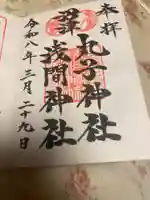 奉拝
丸子神社
浅間神社
令和八年三月二十九日